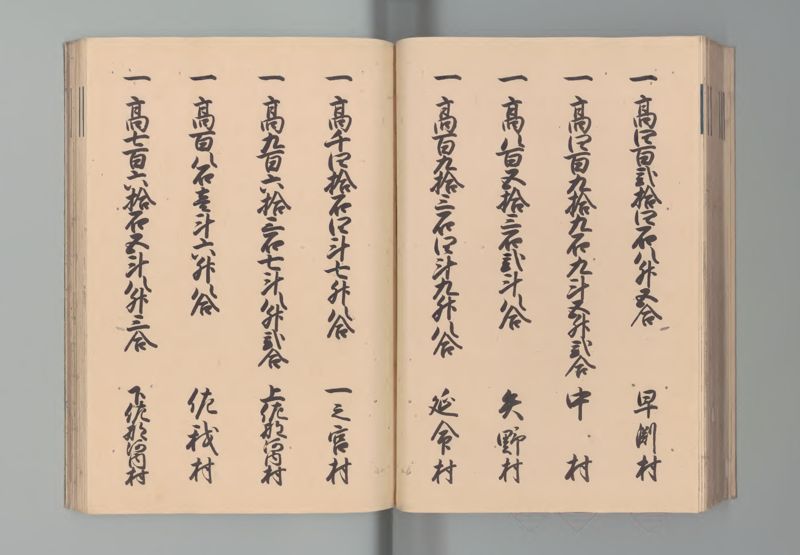 一 高四百弐拾四石八升五合 早渕村
一 高四百九拾九石九斗五升弐合 中村
一 高八百五拾三石弐斗八合 矢野村
一 高百九拾三石四斗九升八合 延命村
一 高千四拾石四斗七升八合 一之宮村
一 高九百六拾三石七斗八升弐合 上佐那河内村
一 高百八石壱斗六升八合 佐我村
一 高七百六拾石五斗八升三合 下佐那河内村